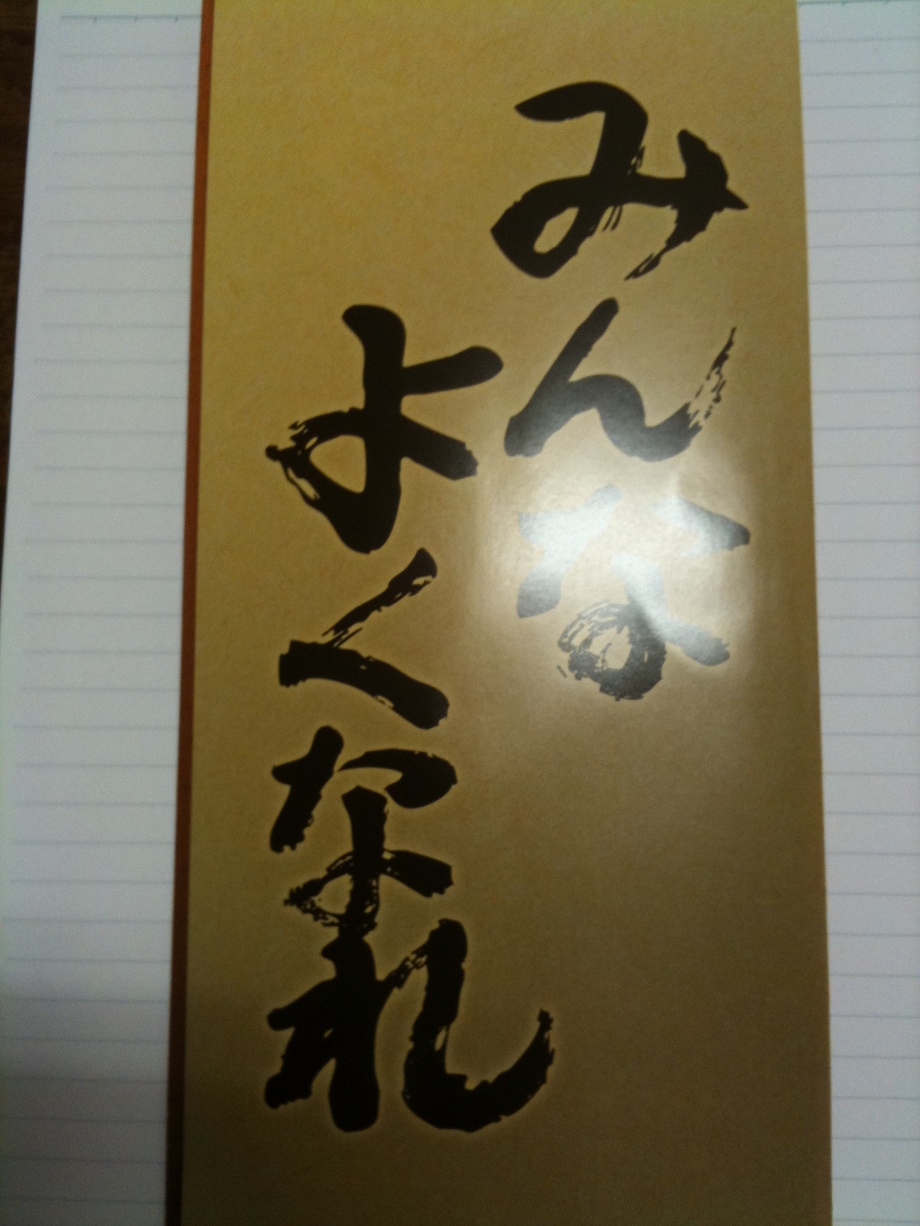 みんな
よくなれ